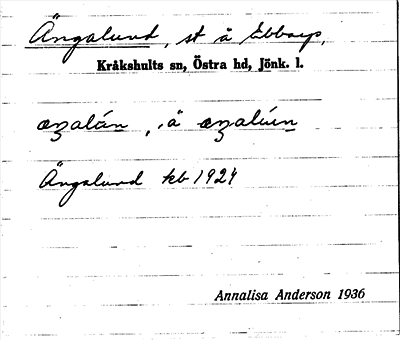 Ängalund, st å Ebbarp,
Kråkshults sn, Östra hd, Jönk. l.
æŋalún, å æŋalúin
Ängalund kb 1924
Annalisa Anderson 1936